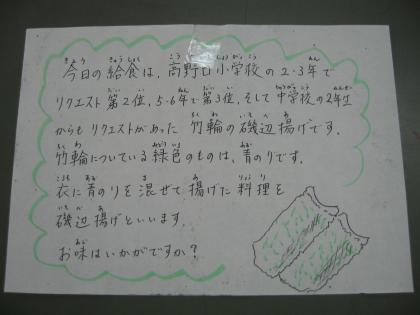 今日の給食は、高野口小学校の2・3年で
リクエスト第2位、5・6年で第3位、そして中学校の2年生
からもリクエストがあった 竹輪の磯辺揚げです。
竹輪についている緑色のものは、青のりです。
衣に青のりを混ぜて揚げた料理を
磯辺揚げといいます。
お味はいかがですか?